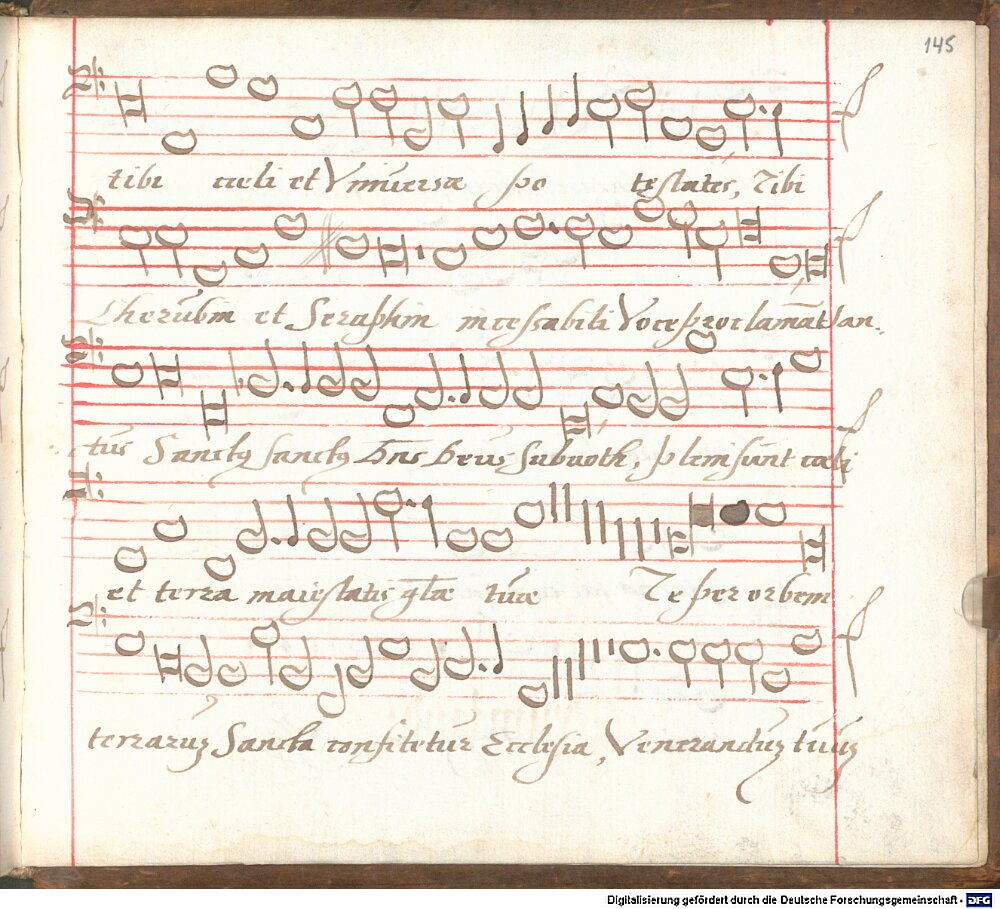 145
tibi cæli et Vniuersæ po testates, Tibi
Cherubin et Seraphin incessabili Voce proclamāt San,
tus Sanctus sanctus Dns Deus Sabaoth, pleni sunt cæli
et terra maiestatis glæ tuæ Te per orbem
terrarum Sancta confitetur Ecclesia, Venerandum tuum
Digitalisierung gefördert durch die Deutsche Forschungsgemeinschaft - DFG